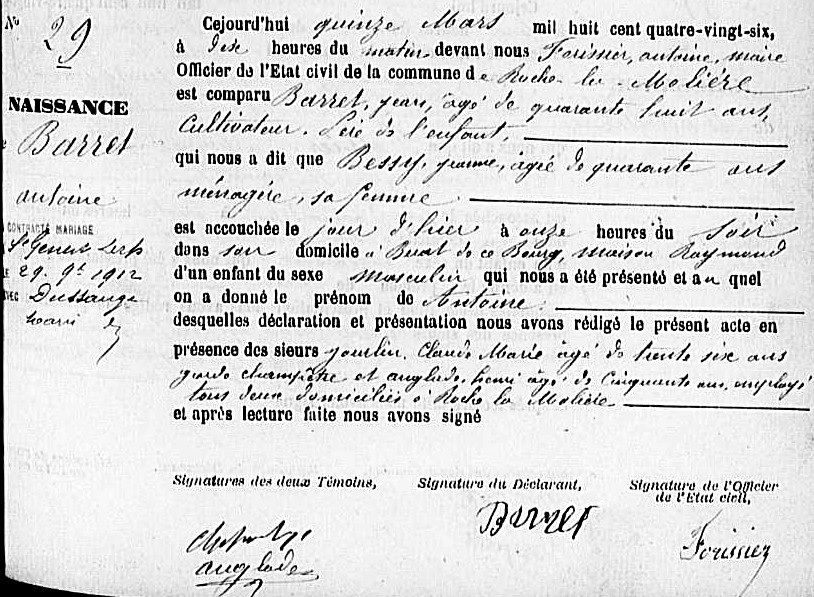 N° 29
NAISSANCE
Barret
antoine
CONTRACTÉ MARIAGE
St Genest Lerpt
LE 29. 9bre 1912
AVEC Dussauge
Cejourd'hui quinze Mars mil huit cent quatre-vingt-six,
à dix heures du matin devant nous Forissier, antoine, maire
Officier de l'Etat civil de la commune de Roche-la-Molière
est comparu Barret, jean, agé de quarante huit ans,
Cultivateur. Père de l'enfant
qui nous a dit que Bessy, jeanne, agée de quarante ans
ménagère, sa femme
est accouchée le jour d'hier à onze heures du soir
dans son domicile à de ce Bourg, maison Raymond
d'un enfant du sexe masculin qui nous a été présenté et au quel
on a donné le prénom de Antoine
desquelles déclaration et présentation nous avons rédigé le présent acte en
présence des sieurs Claude Marie agé de trente six ans
garde champêtre et anglade, henri agé de Cinquante ans, employé
tous deux domiciliés à Roche la Molière
et après lecture faite nous avons signé
Signatures des deux Témoins, Signature du Déclarant, Signature de l'Officier
de l'Etat civil,
Barret
anglade
Forissier